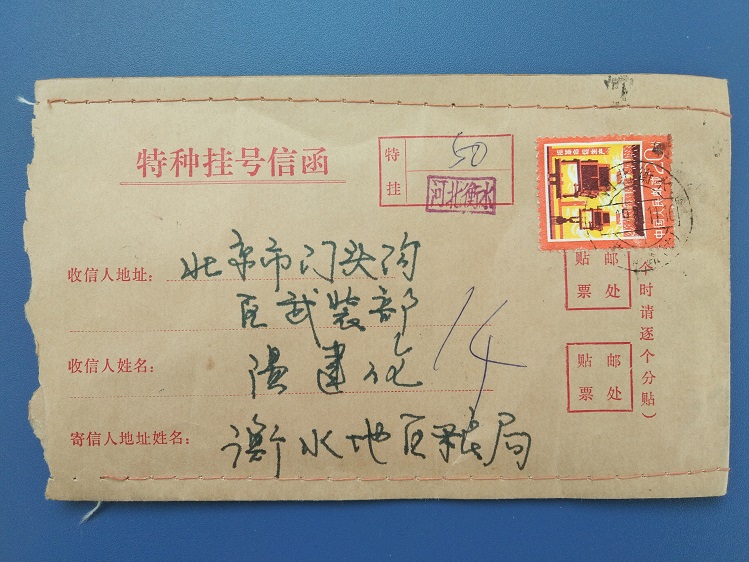 特种挂号信函
特挂
50
河北衡水
20
中国人民邮政
收信人地址：北京市门头沟
区武装部
收信人姓名：
建化
14
寄信人地址姓名：衡水地区粮局
邮票贴处
邮票贴处
个时请逐个分贴）